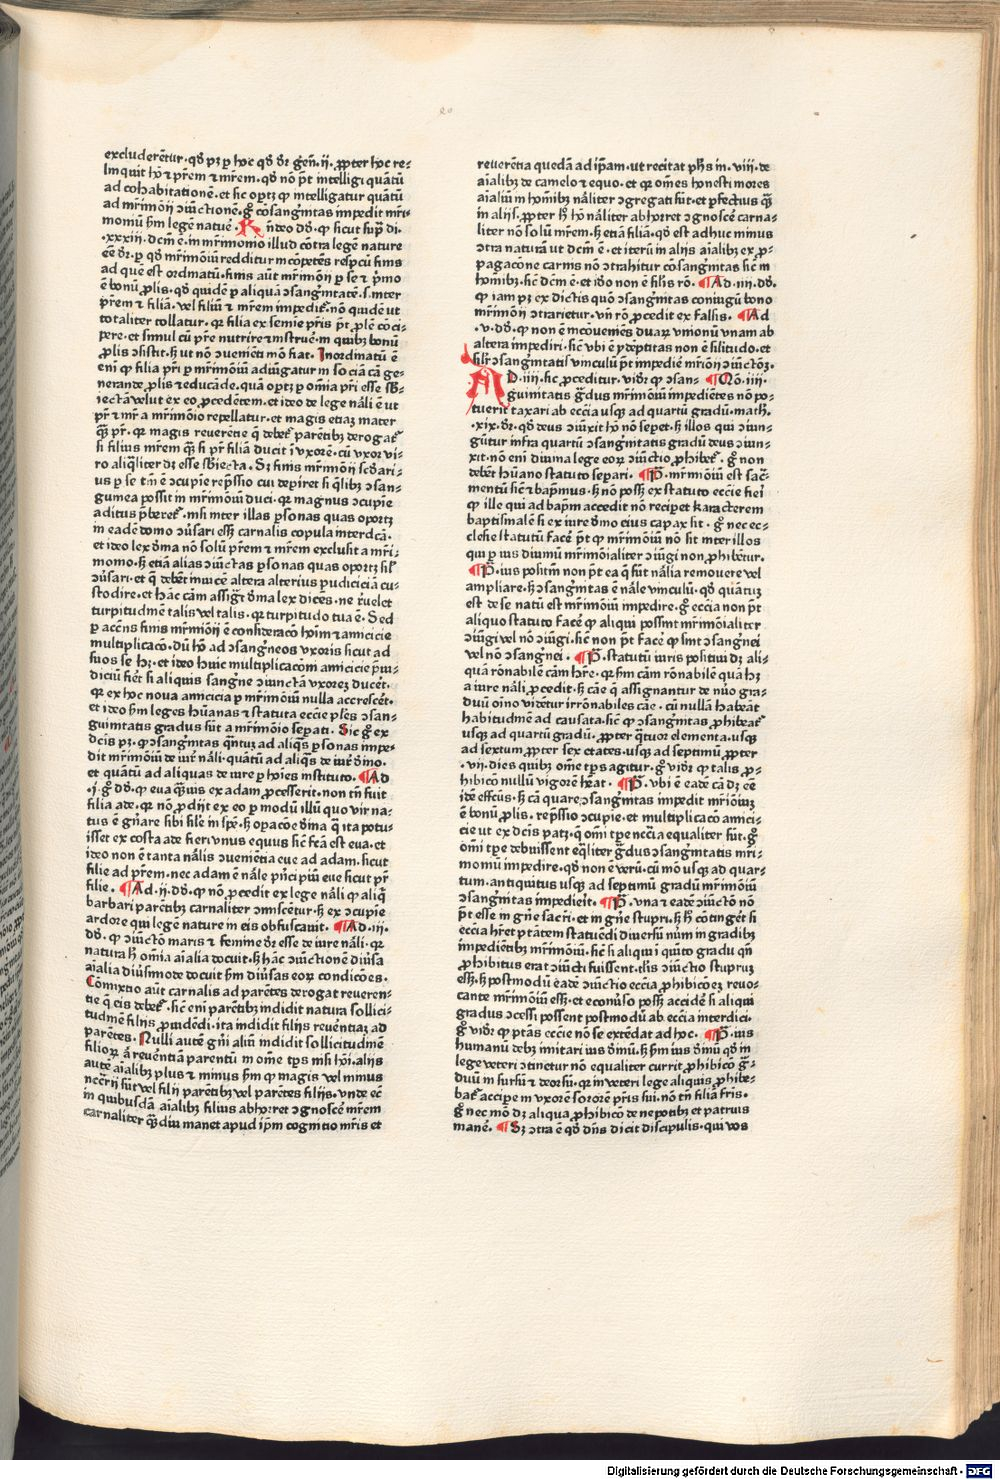 excluderētur. qd' pꝫ ꝑ hoc qd' dr̄ gen̄. ij. ꝓpter hoc re-
linquit hō ⁊ pr̄em ⁊ mr̄em. qd' nō pt̄ intelligi quātū
ad cohabitationē. et sic oportꝫ ꝙ intelligatur quātū
ad mr̄imonij ↄiūctionē. gͦ cōsang'nitas impedit mr̄i-
moniū ẜm legē nature. Rn̄deo dd'. ꝙ sicut supͣ di.
.xxxiij. dcm̄ ē. in mr̄imonio illud cōtra legē nature
eē dr̄. ꝑ qd' mr̄imoniū redditur incōpetēs respectu finis
ad quē est ordinatū. finis aūt mr̄imonij ꝑ se ⁊ pͥmo
ē bonū ꝓlis. qd' quidē ꝑ aliquā ↄsang'nitatē. s. inter
pr̄em ⁊ filiā. vel filiū ⁊ mr̄em impedit'. nō quidē ut
totaliter tollatur. qr filia ex semīe pr̄is pt̄ ꝓlē cōci-
pere. et simul cū pr̄e nutrire ⁊ instruē. in quibꝫ bonū
ꝓlis ↄsistit. sꝫ ut nō ↄueniēti mō fiat. Inordinatū ē
eni ꝙ filia pr̄i ꝑ mr̄imoniū adiūgatur in sociā cā ge-
nerande ꝓlis ⁊ educāde. quā oportꝫ ꝑ omīa pr̄i esse sb̄-
iectā velut ex eo ꝓcedētem. et ideo de lege nāli ē ut
pr̄ ⁊ mr̄ a mr̄imonio repellatur. et magis etiaꝫ mater
qͣꝫ pr̄. qr magis reuerētie q̄ debet' parētibꝫ derogat'
si filius mr̄em qͣꝫ si pr̄ filiā ducit ī vxorē. cū vxor vi-
ro aliqͥliter dꝫ esse sb̄iecta. Sꝫ finis mr̄imonij scd'ari-
us ꝑ se tm̄ ē ↄcupīe rep̄ssio cui deꝑiret si qͥlibꝫ ↄsan-
guinea possit in mr̄imoniū duci. qr magnus ↄcupīe
aditus p̄beret'. nisi inter illas ꝑsonas quas oportꝫ
in eadē domo ↄūsari essꝫ carnalis copula interdcā.
et ideo lex diuīa nō solū pr̄em ⁊ mr̄em exclusit a mr̄i-
monio. sꝫ etiā alias ↄiūctas ꝑsonas quas oportꝫ sil'
ↄūsari. et q̄ debēt inuicē altera alterius pudiciciā cu-
stodire. et hāc cām assig't diuīa lex dicēs. ne reuelet
turpitudinē talis vel talis. qr turpitudo tua ē. Sed
ꝑ accn̄s finis mr̄imonij ē confederacō hoīm ⁊ amicicie
multiplicacō. dū hō ad ↄsang'neos vxoris sicut ad
suos se hꝫ. et ideo huic multiplicacōni amicicie p̄iu-
diciū fier̄t si aliquis sang'ne ↄiūctā vxorꝫ ducēt.
qr ex hoc noua amicicia ꝑ mr̄imoniū nulla accresceret.
et ideo ẜm leges hūanas ⁊ statuta eccīe pl'es ↄsan-
guinitatis gradus sūt a mr̄imōio seꝑati. Sic gͦ ex
dcīs pꝫ. ꝙ ↄsang'nitas qͣntuꝫ ad aliqͣs ꝑsonas impe-
dit mr̄imoniū de iur̄ nāli. quātū ad aliqͣs de iur̄ diuīno.
et quātū ad aliquas de iure ꝑ hoīes instituto. ¶ Ad
.j. gͦ dd'. ꝙ eua qͣꝫuis ex adam ꝓcesserit. non tn̄ fuit
filia ade. qr nō ꝓdijt ex eo ꝑ modū illū quo vir na-
tus ē gn̄are sibi sil'e in spē. sꝫ oꝑacōe diuīa q̄ ita potu-
isset ex costa ade fieri vnus equus sic' fcā est eua. et
ideo non ē tanta nālis ↄueniētia eue ad adam. sicut
filie ad pr̄em. nec adam ē nāle pͥncipiū eue sicut pr̄
filie. ¶ Ad. ij. dd'. ꝙ nō ꝓcedit ex lege nāli ꝙ aliqͥ
barbari parētibꝫ carnaliter ↄmiscētur. sꝫ ex ↄcupīe
ardore qui legē nature in eis obfuscauit. ¶ Ad. iij.
dd'. ꝙ ↄiūctō maris ⁊ femine dr̄ esse de iure nāli. qr
natura hͦ omīa aīalia docuit. sꝫ hāc ↄiūctionē diūsa
aīalia diūsimode docuit ẜm diūsas eoꝝ condicōes.
Cōmixtio aūt carnalis ad parētes derogat reueren-
tie q̄ eis debet'. sic' eni parētibꝫ indidit natura sollici-
tudinē filijs ꝓuidēdi. ita indidit filijs reuerētiaꝫ ad
parētes. Nulli autē gn̄i aliū indidit sollicitudinē
filioꝝ aut reuerētiā parentū in ome tp̄s nisi hoī. alijs
autē aīalibꝫ plus ⁊ minus ẜm ꝙ magis vel minus
nccrīj sūt vel filij parētibꝫ vel parētes filijs. vnde ec̄
in quibusdā aīalibꝫ filius abhorret ↄgnoscē mr̄em
carnaliter qͣꝫdiu manet apud ip̄m cognitio mr̄is et
reuerētia quedā ad ip̄am. ut recitat phs̄ in. viij. de
aīalibꝫ de camelo ⁊ equo. et qr om̄es honesti mores
aīaliū in hoīnibꝫ nāliter ↄgregati sūt. et ꝑfectius qͣꝫ
in alijs. ꝓpter hͦ hō nāliter abhorret ↄgnoscē carna-
liter nō solū mr̄em. sꝫ etiā filiā. qd' est adhuc minus
ↄtra naturā ut dcm̄ ē. et iterū in alijs aīalibꝫ ex ꝓ-
pagacōne carnis nō ↄtrahitur cōsang'nitas sic' in
hoībꝫ. sic' dcm̄ ē. et iō̄o non ē sil'is rō. ¶ Ad. iiij. dd'.
ꝙ iam pꝫ ex dictis quō ↄsang'nitas coniugū bono
mr̄imonij ↄtrarietur. vn̄ rō ꝓcedit ex falsis. ¶ Ad
.v. dd'. ꝙ non ē incoueniēs duaꝝ vnionū vnam ab
altera impediri. sic' vbi ē ydēptitas non ē silitudo. et
silr̄ ↄsang'nitatis vinculū pt̄ impediē mr̄ionij ↄiūctōꝫ.
AD. iiij. sic ꝓceditur. vid'r ꝙ ↄsan- ¶ Qō. iiij.
guinitatis g̓dus mr̄imoniū impediētes nō po-
tuerit taxari ab eccīa usqꝫ ad quartū gradū. math.
.xix. dr̄. qd' deus ↄiūxit hō nō seꝑet. sꝫ illos qui ↄiun-
gūtur infra quartū ↄsang'nitatis gradū deus ↄiun-
xit. nō eni diuina lege eoꝝ ↄiūctio ꝓhibet'. gͦ non
debēt hūano statuto seꝑari. ¶ P̄. mr̄imoniū est sac̄-
mentū sic' ⁊ bapt̄imus. sꝫ nō possꝫ ex statuto eccīe fieri
ꝙ ille qui ad bapt̄m accedit nō reciꝑet karacterem
baptismalē si ex iure diuīno eius capax sit. gͦ nec ec-
clesie statutū facē pt̄ ꝙ mr̄imoniū nō sit inter illos
qui ꝑ ius diuinū mr̄imōialiter ↄiūgi non ꝓhibētur.
¶ P̄. ius positiuū non pt̄ ea q̄ sūt nālia remouere vel
ampliare. sꝫ ↄsang'nitas ē nāle vinculū. qd' quātuꝫ
est de se natū est mr̄imoniū impedire. gͦ eccīa non pt̄
aliquo statuto facē ꝙ aliqui possint mr̄imonialiter
ↄiūgi vel nō ↄiūgi. sic' non pt̄ facē ꝙ sint ↄsang'nei
vel nō ↄsang'nei. ¶ P̄. statutū iuris positiui dꝫ ali-
quā rōnabilē cām hr̄e. qr ẜm cām rōnabilē quā hꝫ
a iure nāli ꝓcedit. sꝫ cāe q̄ assignantur de nūo gra-
duū oīno vidētur irrōnabiles cāe. cū nullā habeāt
habitudinē ad causata. sic' ꝙ ↄsang'nitas ꝓhibeat'
usqꝫ ad quartū gradū. ꝓpter qͣtuor elementa. usqꝫ
ad sextum ꝓpter sex etates. usqꝫ ad septimū ꝓpter
.vij. dies quibꝫ ome tp̄s agitur. gͦ vid'r ꝙ talis ꝓ-
hibicō nullū vigorē heat. ¶ P̄. vbi ē eadē cā dꝫ eē
idē effcūs. sꝫ cā quare ↄsang'nitas impedit mr̄ioniuꝫ
ē bonū ꝓlis. rep̄ssio ↄcupīe. et multiplicacō amici-
cie ut ex dcīs patꝫ. q̄ omī tpe neccīa equaliter sūt. gͦ
omī tpe debuissent eqͣliter g̓dus ↄsang'nitatis mr̄i-
moniū impedire. qd' non ē verū. cū mō usqꝫ ad quar-
tum. antiquitus usqꝫ ad septimū gradū mr̄imoniū
ↄsang'nitas impedierit. ¶ P̄. vna ⁊ eadē ↄiūctō nō
pt̄ esse in gn̄e sacri. et in gn̄e stupri. sꝫ hͦ cōtingēt si
eccīa hr̄et ptātem statuēdi diuersū nūm in gradibꝫ
impediētibꝫ mr̄imoniū. sic' si aliqui in quīto gradu qn̄
ꝓhibitus erat ↄiūcti fuissent. tl'is ↄiūctio stupruꝫ
essꝫ. sꝫ postmodū eadē ↄiūctio eccīa ꝓhibicōeꝫ reuo-
cante mr̄imoniū essꝫ. et econūso possꝫ accidē si aliqui
gradus ↄcessi possent postmodū ab eccīa interdici.
gͦ vid'r ꝙ ptās eccīe nō se extēdat ad hoc. ¶ P̄. ius
humanū debꝫ imitari ius diuīnū. sꝫ ẜm ius diuīnū qd' in
lege veteri ↄtinetur nō equaliter currit ꝓhibicō g̓-
duū in sursū ⁊ deorsū. qr in veteri lege aliquis ꝓhibe-
bat' acciꝑe in vxorē sororē pr̄is sui. nō tn̄ filiā fr̄is.
gͦ nec mō dꝫ aliqua ꝓhibicō de nepotibꝫ et patruis
manē. ¶ Sꝫ ↄtra ē qd' dn̄s dicit discipulis. qui vos
Digitalisierung gefördert durch die Deutsche Forschungsgemeinschaft - DFG